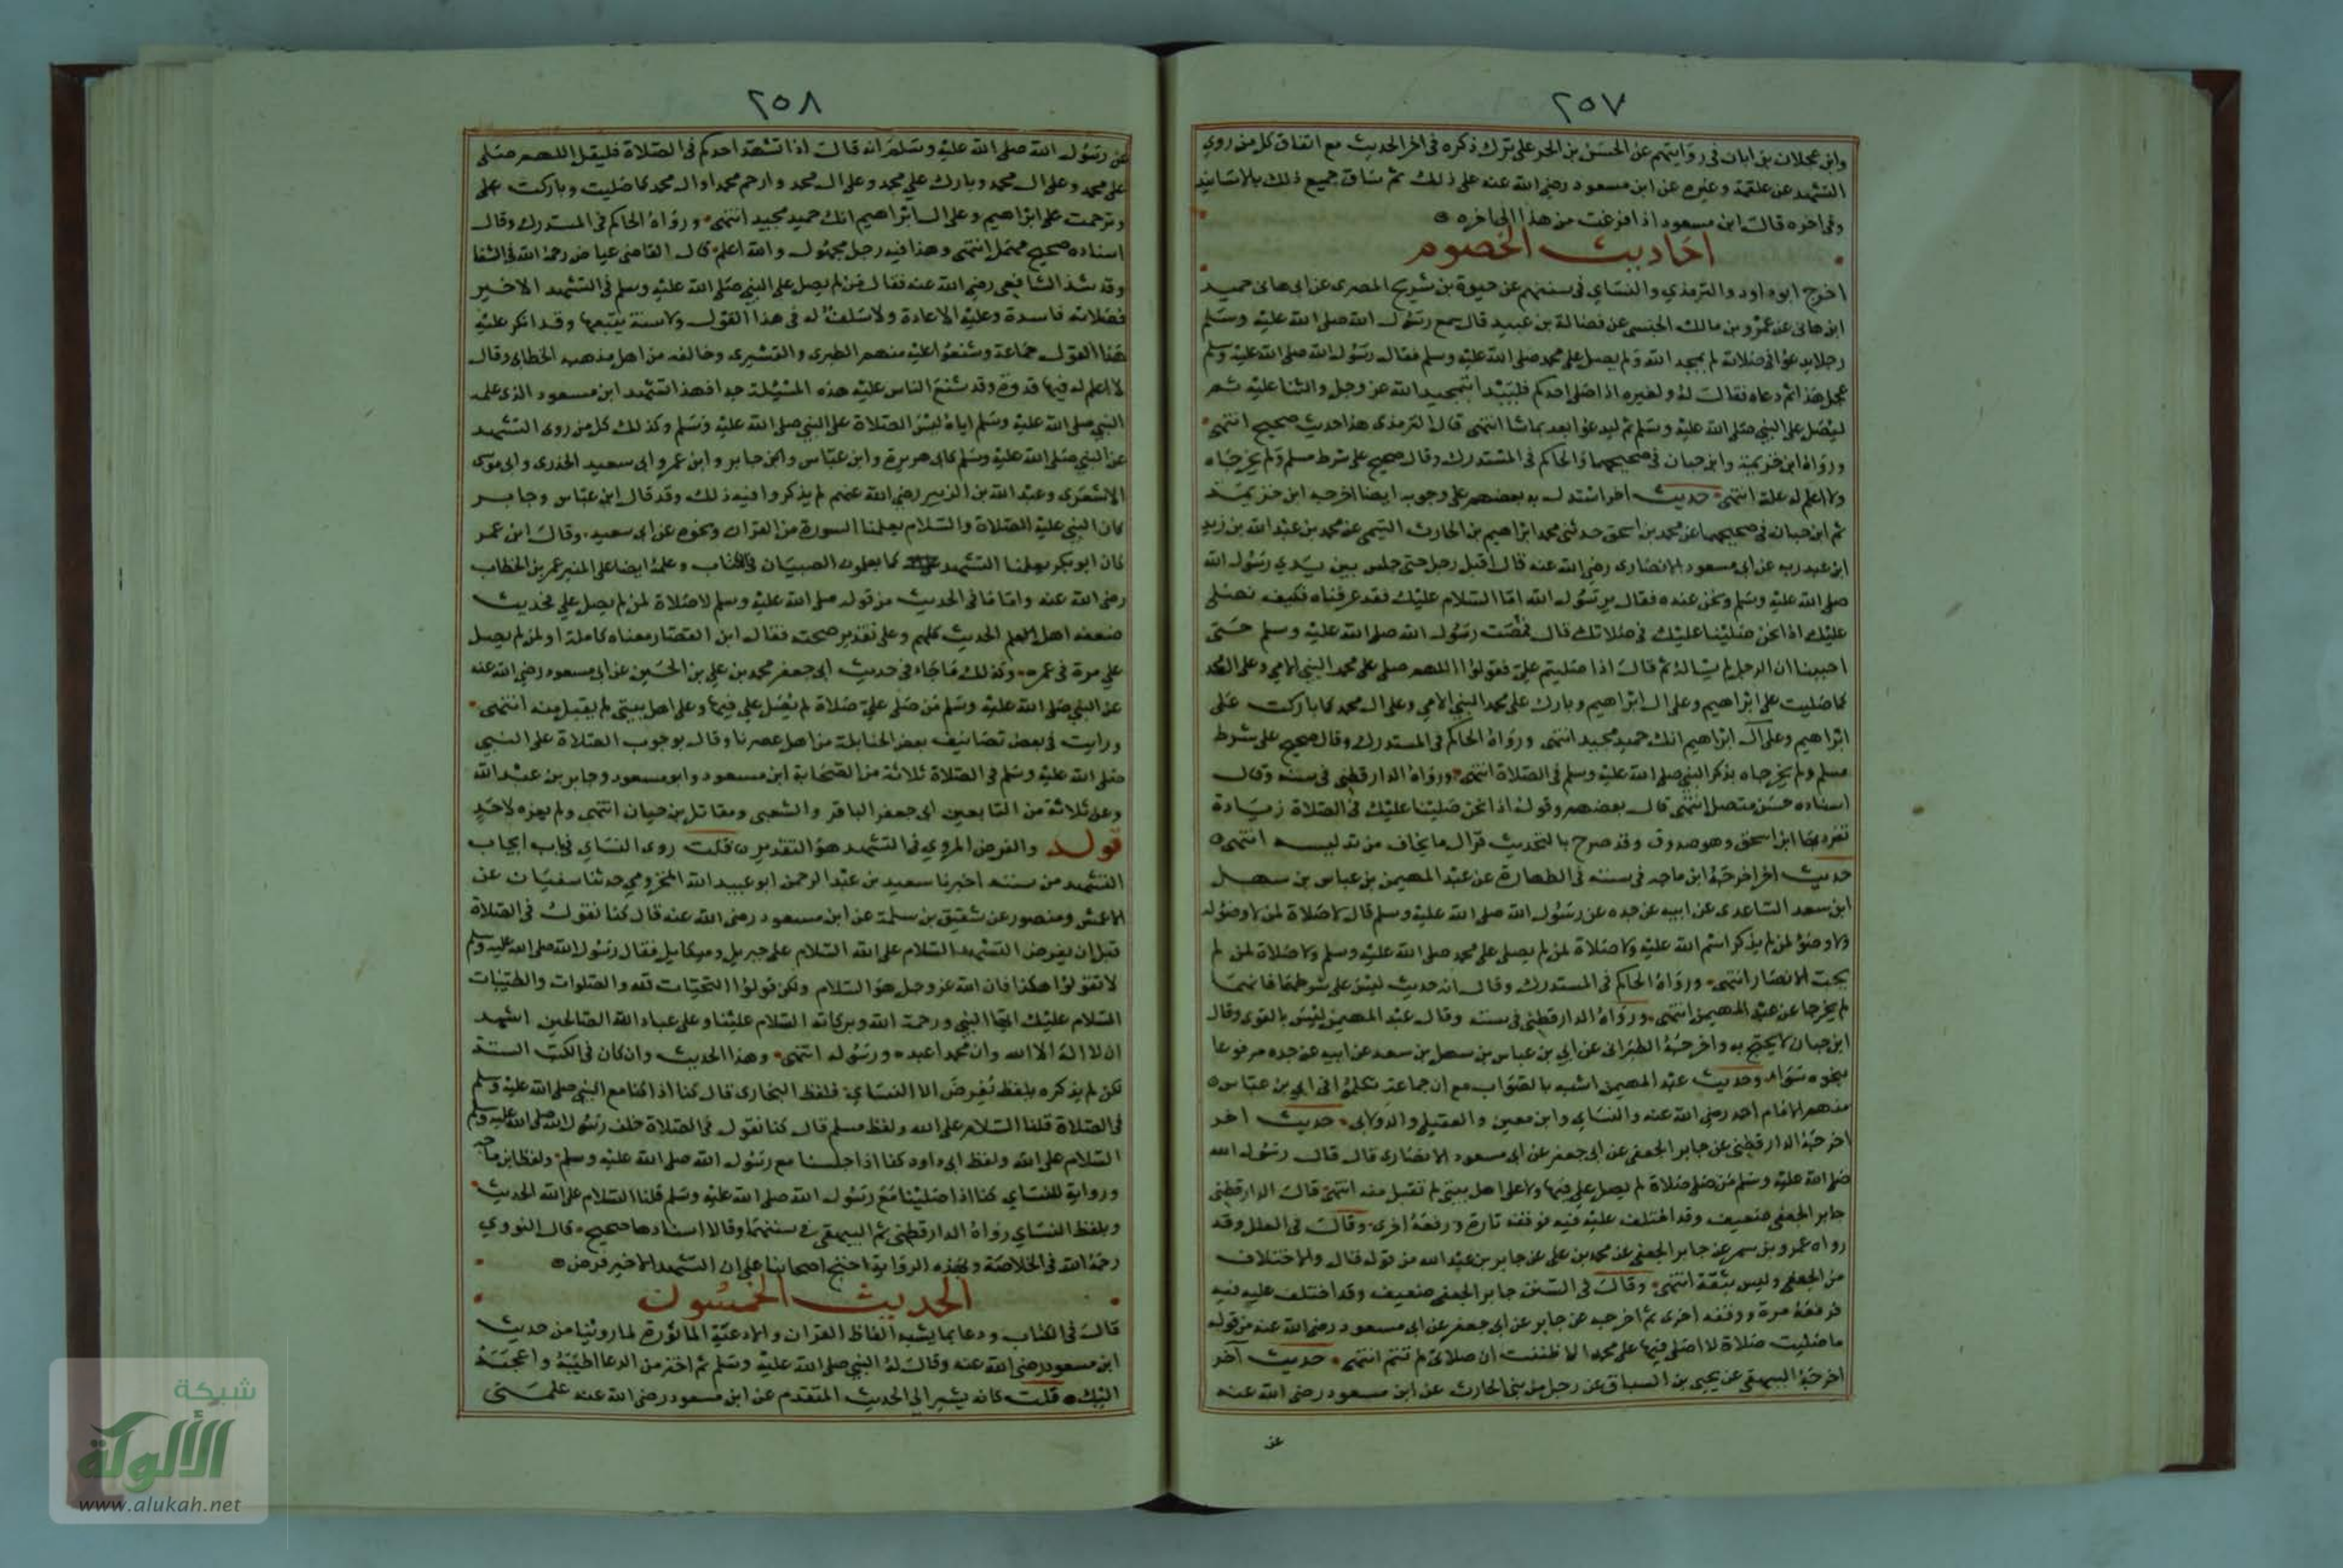 ٢٥٧
وابن عجلان بن ابان في روايتهم عن الحسن بن الحر على ترك ذكره في اخر الحديث مع اتفاق كل من روي
التشهد عن علقمة وغيره عن ابن مسعود رضي الله عنه على ذلك ثم ساق جميع ذلك بالاسانيد
وفي اخره قال ابن مسعود اذا فرغت من هذا الي اخره
احاديث الخصوم
اخرج ابوداود والترمذي والنساي في سننهم عن حيوة بن شريح المصرى عن ابي هاني حميد
ابن هاني عن عمرو بن مالك الجنبي عن فضالة بن عبيد قال سمع رسول الله صلى الله عليه وسلم
رجلا يدعوا في صلاته لم يمجد الله ولم يصل على محمد صلى الله عليه وسلم فقال رسول الله صلى الله عليه وسلم
عجل هذا ثم دعاه فقال له ولغيره اذا صلى احدكم فليبدا بتمجيد الله عز وجل والثنا عليه ثم
ليصل على النبي صلى الله عليه وسلم ثم ليدعوا بعد بما شا انتهى قال الترمذي هذا حديث صحيح انتهى
ورواه ابن خزيمة وابن حبان في صحيحهما والحاكم في المستدرك وقال صحيح على شرط مسلم ولم يخرجاه
ولا اعلم له علة انتهى حديث اخر استدل به بعضهم على وجوبه ايضا اخرجه ابن خزيمة
ثم ابن حبان في صحيحهما عن محمد بن اسحق حدثني محمد ابراهيم بن الحارث التيمي عن محمد بن عبد الله بن زيد
ابن عبد ربه عن ابي مسعود الانصاري رضي الله عنه قال اقبل رجل حتى جلس بين يدي رسول الله
صلى الله عليه وسلم ونحن عنده فقال يرسول الله اما السلام عليك فقد عرفناه فكيف نصلي
عليك اذا نحن صلينا عليك في صلاتنا قال فصمت رسول الله صلى الله عليه وسلم حتى
احببنا ان الرجل لم يساله ثم قال اذا صليتم علي فقولوا اللهم صلى على محمد النبي الامي وعلى ال محمد
كما صليت على ابراهيم وعلى ال ابراهيم وبارك على محمد النبي الامي وعلى ال محمد كما باركت على
ابراهيم وعلى ال ابراهيم انك حميد مجيد انتهى ورواه الحاكم في المستدرك وقال صحيح على شرط
مسلم ولم يخرجاه بذكر النبي صلى الله عليه وسلم في الصلاة انتهى ورواه الدارقطني في سننه وقال
اسناده حسن متصل انتهى قال بعضهم وقوله اذا نحن صلينا عليك في الصلاة زيادة
تفرد بها ابن اسحق وهو صدوق وقد صرح بالتحديث فزال ما يخاف من تدليسه انتهى
حديث اخر اخرجه ابن ماجه في سننه في الطهارة عن عبد المهيمن بن عباس بن سهل
ابن سعد الساعدي عن ابيه عن جده عن رسول الله صلى الله عليه وسلم قال لا صلاة لمن لا وضوله
ولا وضو لمن لم يذكر اسم الله عليه ولا صلاة لمن لم يصلى على محمد صلى الله عليه وسلم ولا صلاة لمن لم
يحب الانصار انتهى ورواه الحاكم في المستدرك وقال انه حديث ليس على شرطهما فانهما
لم يخرجا عن عبد المهيمن انتهى ورواه الدارقطني في سننه وقال عبد المهيمن ليس بالقوي وقال
ابن حبان لا يحتج به واخرجه الطبراني عن ابي بن عباس بن سهل بن سعد عن ابيه عن جده مرفوعا
بنحوه سواء وحديث عبد المهيمن اشبه بالصواب مع ان جماعة تكلموا في ابي بن عباس
منهم الامام احمد رضي الله عنه والنساي وابن معين والعقيلي والدولابي حديث اخر
اخرجه الدارقطني عن جابر الجعفي عن ابي جعفر عن ابي مسعود الانصاري قال قال رسول الله
صلى الله عليه وسلم من صلى صلاة لم يصل علي فيها ولا على اهل بيتي لم تقبل منه انتهى قال الدارقطني
جابر الجعفي ضعيف وقد اختلف عليه فيه فوقفه تارة ورفعه اخرى وقال في العلل وقد
رواه عمرو بن سمر عن جابر الجعفي عن محمد بن علي عن جابر بن عبد الله من قوله قال والاختلاف
من الجعفي وليس بثقة انتهى وقال في السنن جابر الجعفي ضعيف وقد اختلف عليه فيه
فرفعه مرة ووقفه اخرى ثم اخرجه عن جابر عن ابي جعفر عن ابي مسعود رضي الله عنه من قوله
ما صليت صلاة لا اصلى فيها على محمد الا ظننت ان صلاتي لم تتم انتهى حديث آخر
اخرجه البيهقي عن يحيى بن السباق عن رجل من بني الحارث عن ابن مسعود رضي الله عنه
عن
٢٥٨
عن رسول الله صلى الله عليه وسلم انه قال اذا تشهد احدكم في الصلاة فليقل اللهم صلى
على محمد وعلى ال محمد وبارك على محمد وعلى ال محمد وارحم محمدا وال محمد كما صليت وباركت على
وترحمت على ابراهيم وعلى ال ابراهيم انك حميد مجيد انتهى ورواه الحاكم في المستدرك وقال
اسناده صحيح متصل انتهى وهذا فيه رجل مجهول والله اعلم قال القاضي عياض رحمه الله في الشفا
وقد شذ الشافعي رضي الله عنه فقال من لم يصل على النبي صلى الله عليه وسلم في التشهد الاخير
فصلاته فاسدة وعليه الاعادة ولا سلف له في هذا القول ولا سنة يتبعها وقد انكر عليه
هذا القول جماعة وشنعوا عليه منهم الطبري والقشيري وخالفه من اهل مذهبه الخطابي وقال
لا اعلم له فيها قدوة وقد شنع الناس عليه هذه المسئلة جدا فهذا تشهد ابن مسعود الذي علمه
النبي صلى الله عليه وسلم اياه ليس الصلاة على النبي صلى الله عليه وسلم وكذلك كل من روى التشهد
عن النبي صلى الله عليه وسلم كابي هريرة وابن عباس وابن جابر وابن عمر وابي سعيد الخدري وابي موسى
الاشعري وعبد الله بن الزبير رضي الله عنهم لم يذكروا فيه ذلك وقد قال ابن عباس وجابر
كان النبي عليه الصلاة والسلام يعلمنا السورة من القران ونحوه عن ابي سعيد وقال ابن عمر
كان ابو بكر يعلمنا التشهد كما يعلمون الصبيان في الكتاب وعلمه ايضا على المنبر عمر بن الخطاب
رضي الله عنه واما ما في الحديث من قوله صلى الله عليه وسلم لا صلاة لمن لم يصل علي فحديث
ضعفه اهل العلم الحديث كلهم وعلى تقدير صحته فقال ابن القصار معناه كاملة او لمن لم يصل
علي مرة في عمره وكذلك ما جاء في حديث ابي جعفر محمد بن علي بن الحسين عن ابي مسعود رضي الله عنه
عن النبي صلى الله عليه وسلم من صلى علي صلاة لم يصل علي فيها وعلى اهل بيتي لم يقبل منه انتهى
ورايت في بعض تصانيف بعض الحنابلة من اهل عصرنا وقال بوجوب الصلاة على النبي
صلى الله عليه وسلم في الصلاة ثلاثة من الصحابة ابن مسعود وابو مسعود وجابر بن عبد الله
وعن ثلاثة من التابعين ابي جعفر الباقر والشعبي ومقاتل بن حيان انتهى ولم يعزه لاحد
قوله والفرض المروي في التشهد هو التقدير قلت روى النساي في باب ايجاب
التشهد من سننه اخبرنا سعيد بن عبد الرحمن ابو عبيد الله المخزومي حدثنا سفيان عن
الاعمش ومنصور عن شقيق بن سلمة عن ابن مسعود رضي الله عنه قال كنا نقول في الصلاة
قبل ان يفرض التشهد السلام على الله السلام على جبريل وميكايل فقال رسول الله صلى الله عليه وسلم
لا تقولوا هكذا فان الله عز وجل هو السلام ولكن قولوا التحيات لله والصلوات والطيبات
السلام عليك ايها النبي ورحمة الله وبركاته السلام علينا وعلى عباد الله الصالحين اشهد
ان لا اله الا الله وان محمدا عبده ورسوله انتهى وهذا الحديث وان كان في الكتب الستة
لكن لم يذكره بلفظ يفرض الا النساي فلفظ البخاري قال كنا اذا كنا مع النبي صلى الله عليه وسلم
في الصلاة قلنا السلام على الله ولفظ مسلم قال كنا نقول في الصلاة خلف رسول الله صلى الله عليه وسلم
السلام على الله ولفظ ابي داود كنا اذا جلسنا مع رسول الله صلى الله عليه وسلم ولفظ ابن ماجه
ورواية للنساي كنا اذا صلينا مع رسول الله صلى الله عليه وسلم قلنا السلام على الله الحديث
وبلفظ النساي رواه الدارقطني ثم البيهقي في سننهما وقالا اسنادها صحيح قال النووي
رحمه الله في الخلاصة وبهذه الرواية احتج اصحابنا على ان التشهد الاخير فرض
الحديث الخمسون
قال في الكتاب ودعا بما يشبه الفاظ القران والادعية الماثورة لما روينا من حديث
ابن مسعود رضي الله عنه وقال له النبي صلى الله عليه وسلم ثم اختر من الدعا اطيبه واعجبه
اليك قلت كانه يشير الي الحديث المتقدم عن ابن مسعود رضي الله عنه علمني
شبكة
الألوكة
www.alukah.net